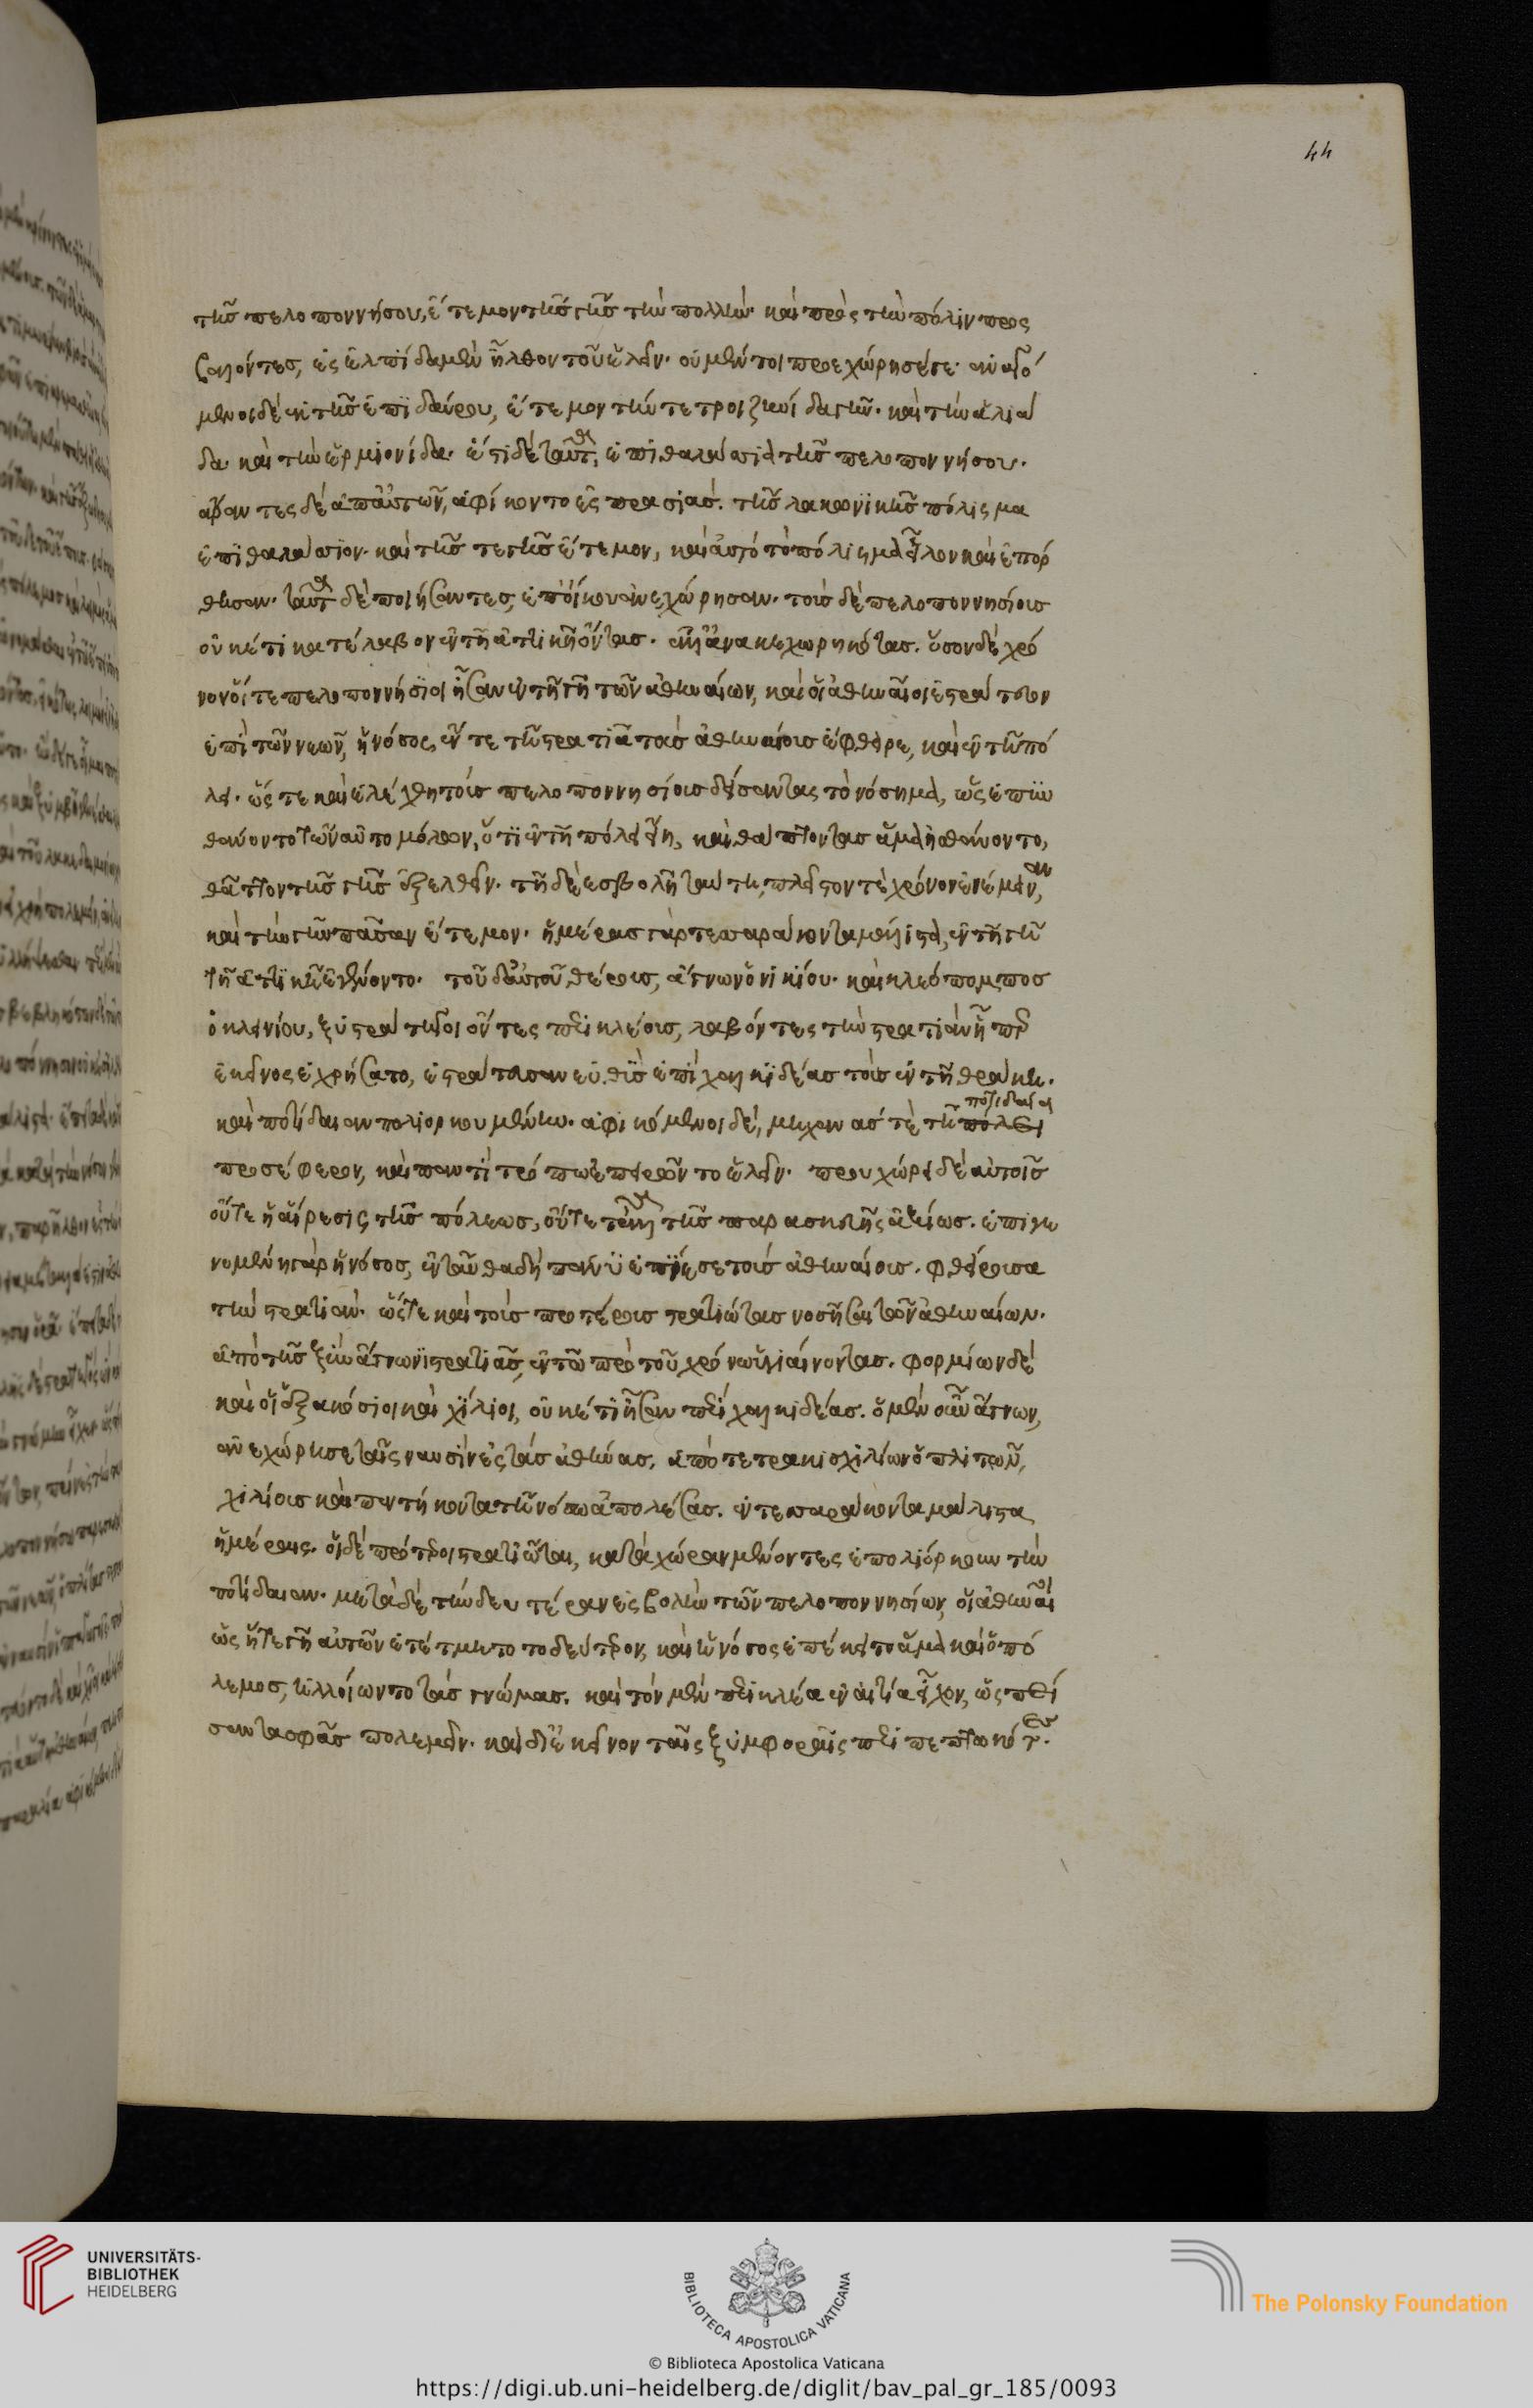 44
τῆς πελοποννήσου, ἔτεμον τῆς γῆς τὴν πολλήν· καὶ πρὸς τὴν πόλιν προς
βαλόντες, ἐς ἐλπίδα μὲν ἦλθον τοῦ ἑλεῖν· οὐ μέντοι προεχώρησέ γε· ἀναγό
μενοι δὲ ἐκ τῆς ἐπιδαύρου, ἔτεμον τήν τε τροιζηνίδα γῆν· καὶ τὴν ἁλιά
δα καὶ τὴν ἑρμιονίδα· ἔστι δὲ ταῦτα, ἐπιθαλάσσια τῆς πελοποννήσου.
ἄραντες δὲ ἀπ' αὐτῶν, ἀφίκοντο ἐς πρασιάς. τῆς λακωνικῆς πόλισμα
ἐπιθαλάσσιον· καὶ τῆς τε γῆς ἔτεμον, καὶ αὐτὸ τὸ πόλισμα εἷλον καὶ ἐπόρ
θησαν· ταῦτα δὲ ποιήσαντες, ἐπ' οἴκου ἀνεχώρησαν· τοὺς δὲ πελοποννησίους
οὐκέτι κατέλαβον ἐν τῇ ἀττικῇ ὄντας· ἀλλ' ἀνακεχωρηκότας. ὅσον δὲ χρό
νον οἵ τε πελοποννήσιοι ἦσαν ἐν τῇ γῇ τῶν ἀθηναίων, καὶ οἱ ἀθηναῖοι ἐστράτευον
ἐπὶ τῶν νεῶν, ἡ νόσος, ἔν τε τῇ στρατιᾷ τοὺς ἀθηναίους ἔφθειρε, καὶ ἐν τῇ πό
λει· ὥστε καὶ ἐλέχθη τοὺς πελοποννησίους δείσαντας τὸ νόσημα, ὡς ἐπυν
θάνοντο τῶν αὐτομόλων, ὅτι ἐν τῇ πόλει εἴη, καὶ θάπτοντας ἅμα ᾐσθάνοντο,
θᾶττον τῆς γῆς ἐξελθεῖν· τῇ δὲ ἐσβολῇ ταύτῃ, πλεῖστόν τε χρόνον ἐνέμειναν,
καὶ τὴν γῆν πᾶσαν ἔτεμον· ἡμέρας γὰρ τεσσαράκοντα μάλιστα, ἐν τῇ γῇ
τῇ ἀττικῇ ἐγένοντο· τοῦ δ' αὐτοῦ θέρους, ἅγνων ὁ νικίου· καὶ κλεόπομπος
ὁ κλεινίου, ξυστράτηγοι ὄντες περικλέους, λαβόντες τὴν στρατιὰν ᾗπερ
ἐκεῖνος ἐχρήσατο, ἐστράτευσαν εὐθὺς ἐπὶ χαλκιδέας τοὺς ἐν τῇ θρᾴκῃ·
ποτιδαίᾳ
καὶ ποτίδαιαν πολιορκουμένην· ἀφικόμενοι δὲ, μηχανάς τε τῇ πόλει
προσέφερον, καὶ παντὶ τρόπῳ ἐπειρῶντο ἑλεῖν· προυχώρει δὲ αὐτοῖς
οὔτε ἡ αἵρεσις τῆς πόλεως, οὔτε τἄλλα τῆς παρασκευῆς ἀξίως· ἐπιγε
νομένη γὰρ ἡ νόσος, ἐνταῦθα δὴ πάνυ ἐπίεσε τοὺς ἀθηναίους· φθείρουσα
τὴν στρατιάν· ὥστε καὶ τοὺς προτέρους στρατιώτας νοσῆσαι τῶν ἀθηναίων·
ἀπὸ τῆς ξὺν ἅγνωνι στρατιᾶς, ἐν τῷ πρὸ τοῦ χρόνῳ ὑγιαίνοντας. φορμίων δὲ
καὶ οἱ ἑξακόσιοι καὶ χίλιοι, οὐκέτι ἦσαν περὶ χαλκιδέας. ὁ μὲν οὖν ἅγνων,
ἀνεχώρησε ταῖς ναυσὶν ἐς τὰς ἀθήνας, ἀπὸ τετρακισχιλίων ὁπλιτῶν,
χιλίους καὶ πεντήκοντα τῇ νόσῳ ἀπολέσας. ἐν τεσσαράκοντα μάλιστα
ἡμέραις· οἱ δὲ πρότεροι στρατιῶται, κατὰ χώραν μένοντες ἐπολιόρκουν τὴν
ποτίδαιαν· μετὰ δὲ τὴν δευτέραν ἐσβολὴν τῶν πελοποννησίων, οἱ ἀθηναῖοι
ὡς ἥ τε γῆ αὐτῶν ἐτέτμητο τὸ δεύτερον, καὶ ἡ νόσος ἐπέκειτο ἅμα καὶ ὁ πό
λεμος, ἠλλοίωντο τὰς γνώμας· καὶ τὸν μὲν περικλέα ἐν αἰτίᾳ εἶχον, ὡς πεί
σαντα σφᾶς πολεμεῖν· καὶ δι' ἐκεῖνον ταῖς ξυμφοραῖς περιπεπτωκότες.
UNIVERSITÄTS-
BIBLIOTHEK
HEIDELBERG
BIBLIOTECA APOSTOLICA VATICANA
The Polonsky Foundation
© Biblioteca Apostolica Vaticana
https://digi.ub.uni-heidelberg.de/diglit/bav_pal_gr_185/0093